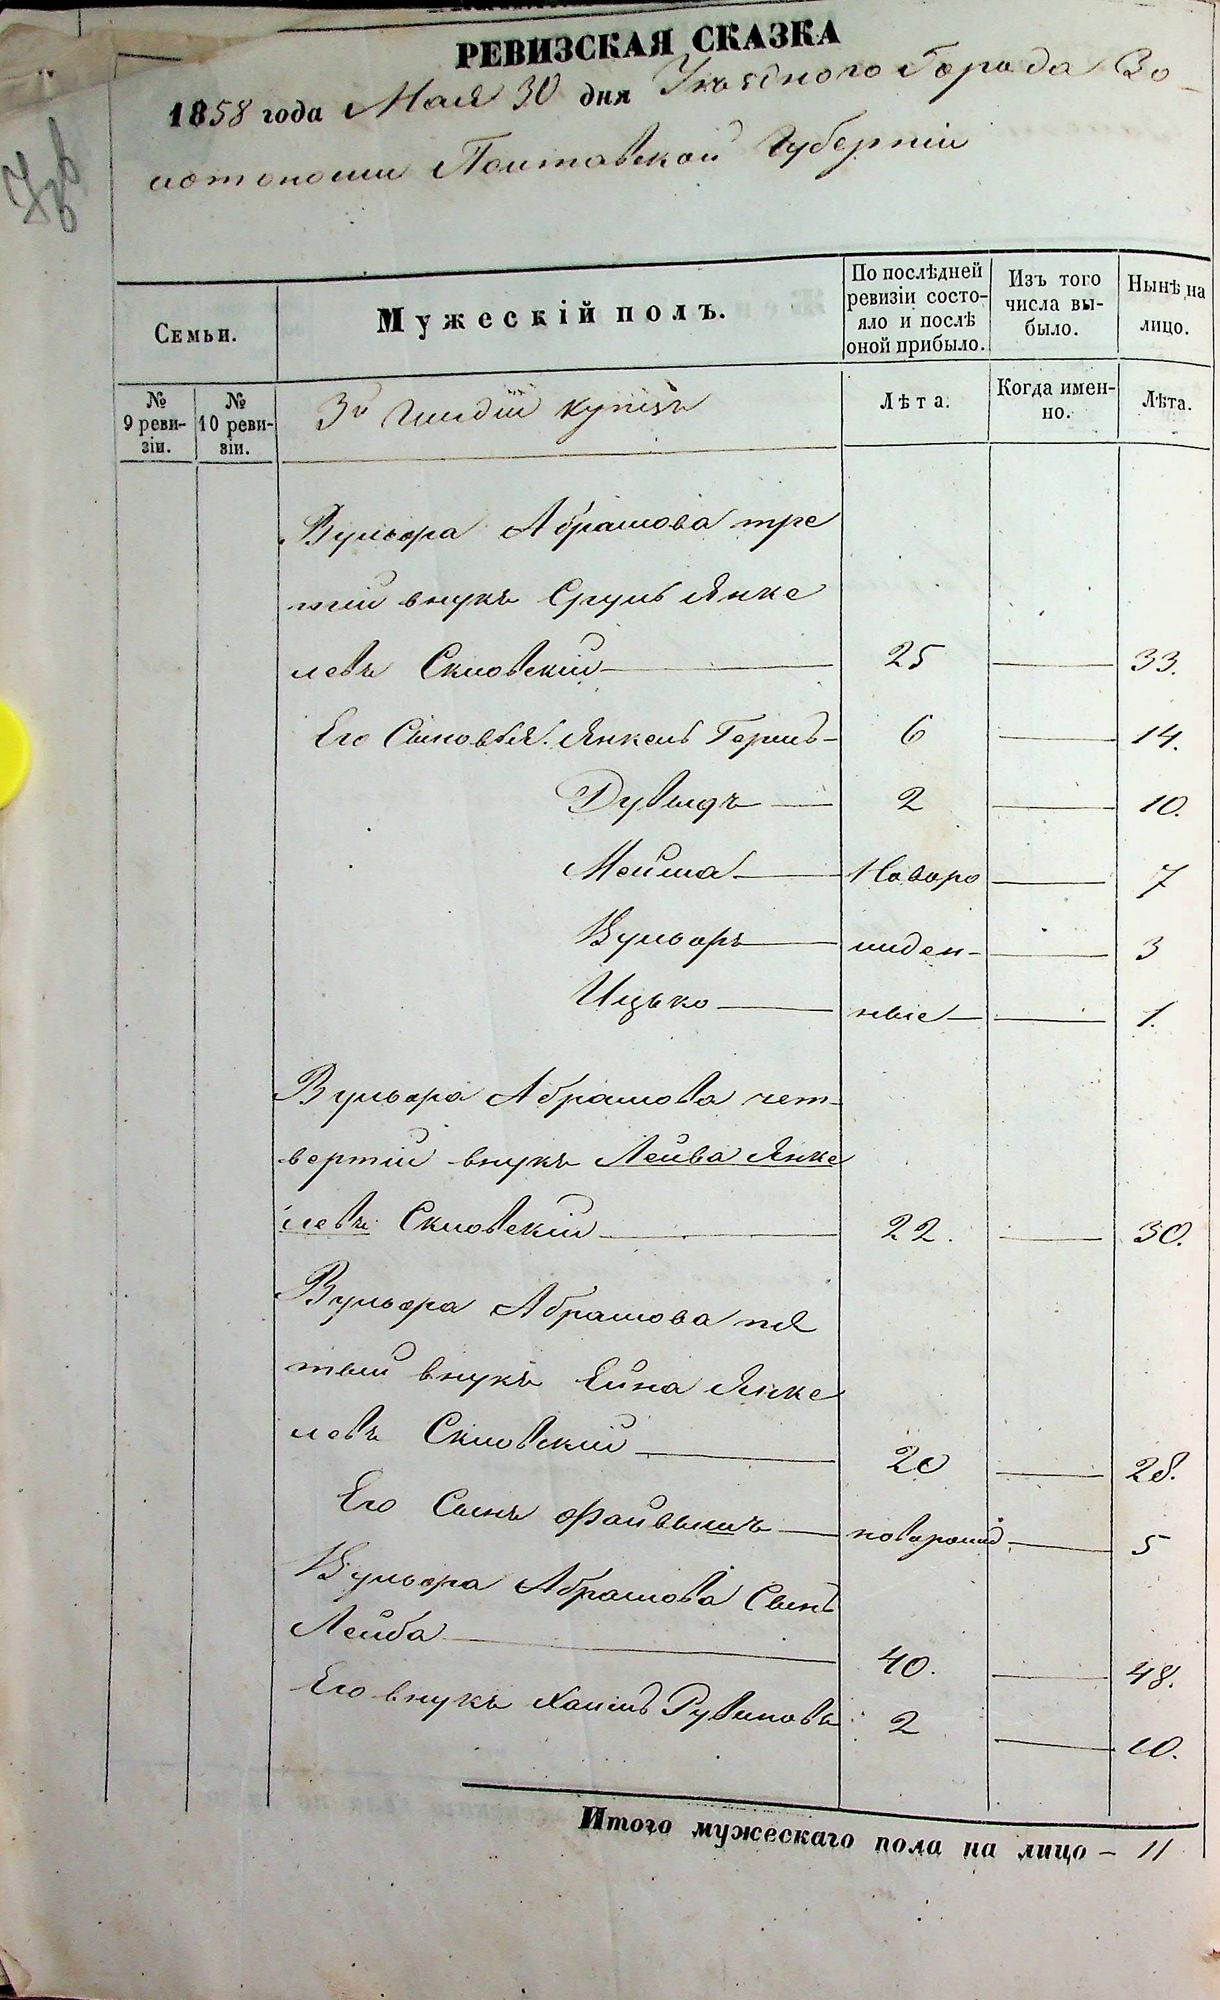 РЕВИЗСКАЯ СКАЗКА
1858 года Мая 30 дня Уѣзднаго Города Зо-
лотоноши Полтавской Губерніи
Семьи.
Мужескій полъ.
По послѣдней ревизіи состо-
яло и послѣ оной прибыло.
Изъ того числа вы-
было.
Нынѣ на лицо.
№ 9 реви-
зіи.
№ 10 реви-
зіи.
3й Гильдіи купцъ
Лѣта.
Когда имен-
но.
Лѣта.
Вульфа Абрамова тре
тій внукъ Сруль Янке
левъ Скловскій — 25 — 33.
Его Сыновья. Янкель Гершъ — 6 — 14.
Дувыдъ — 2 — 10.
Мейша — Новоро — 7
Вульфъ — жден- — 3
Ицько — ные — 1.
Вульфа Абрамова чет-
вертій внукъ Лейба Янке
левъ Скловскій — 22. — 30.
Вульфа Абрамова пя
тый внукъ Ейна Янке
левъ Скловскій — 20 — 28.
Его Сынъ Файвишъ — новорожд — 5
Вульфа Абрамова Сынъ
Лейба — 40. — 48.
Его внукъ Хаимъ Рувиновъ 2 — 10.
Итого мужескаго пола на лицо — 11